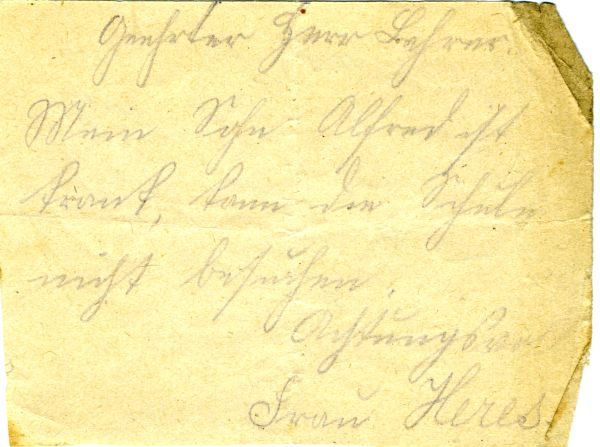 Geehrter Herr Lehrer.
Mein Sohn Alfred ist
krank, kann die Schule
nicht besuchen.
Achtungsvo
Frau Heres.